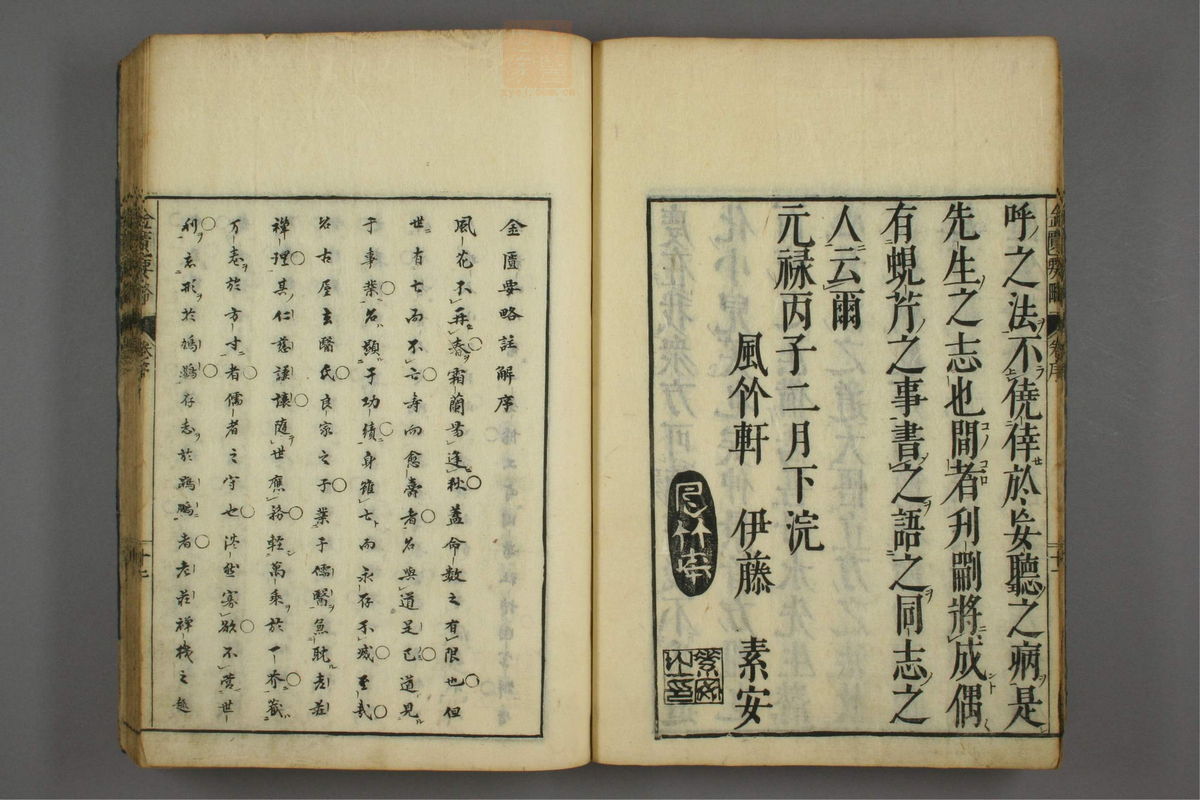 呼之法不僥倖於妄聽之病是
先生之志也間者刋劂將成偶
有蜆芹之事書之語之同志之
人云爾
元禄丙子二月下浣
風竹軒 伊藤 素安
金匱要略註解序
風花不再春霜蘭當逢秋蓋命數之有限也但
世有亡而不亡寿而愈壽者名與道足已道見
于事業名顯于功績身雖亡而永存不减至哉
名古屋玄醫氏良家之子業于儒醫魚耽老莊
禪理其仁慈謙懐随世應務輕萬乘於一芥蔵
万巻於方寸者儒者之守也淡然寡欲不营世
利忘形於鳩鷃存志於鵾鵬者老莊禅機之趣